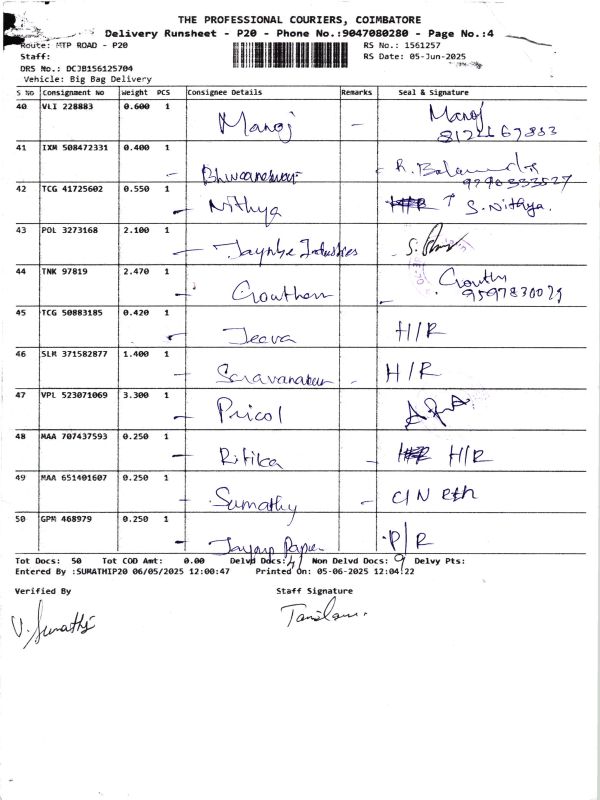 THE PROFESSIONAL COURIERS, COIMBATORE
Delivery Runsheet - P20 - Phone No.:9047080280 - Page No.:4
Route: MTP ROAD - P20 RS No.: 1561257
Staff: RS Date: 05-Jun-2025
DRS No.: DCJB156125704
Vehicle: Big Bag Delivery
S No Consignment No Weight PCS Consignee Details Remarks Seal & Signature
40 VLI 228883 0.600 1 Manoj – Manoj
41 IXM 508472331 0.400 1 Bhuvaneshwari
42 TCG 41725602 0.550 1 Nithya S. Nithya.
43 POL 3273168 2.100 1 Industries
44 TNK 97819 2.470 1 Gowtham Gowthm
9597830029
45 TCG 50883185 0.420 1 Jeeva H/R
46 SLM 371582877 1.400 1 Saravanakumar - H/R
47 VPL 523071069 3.300 1 Pricol
48 MAA 707437593 0.250 1 Ritika – H/R
49 MAA 651401607 0.250 1 Sumathy –
50 GPM 468979 0.250 1 P/R
Tot Docs: 50 Tot COD Amt: 0.00 Delvd Docs: 41 Non Delvd Docs: 9 Delvy Pts:
Entered By :SUMATHIP20 06/05/2025 12:00:47 Printed On: 05-06-2025 12:04:22
Verified By Staff Signature
V. Sumathi